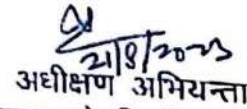 21/8/2023
अधीक्षण अभियन्ता